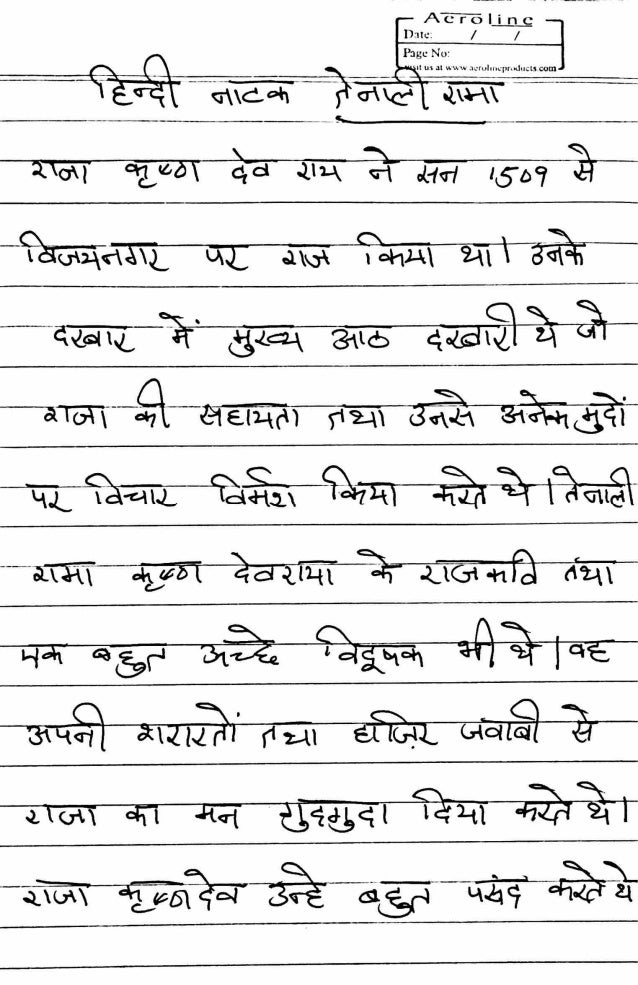 Aeroline
Date: / /
Page No:
visit us at www.aerolineproducts.com
हिन्दी नाटक तेनाली रामा
राजा कृष्ण देव राय ने सन 1509 से
विजयनगर पर राज किया था। उनके
दरबार में मुख्य आठ दरबारी थे जो
राजा की सहायता तथा उनसे अनेक मुद्दों
पर विचार विर्मश किया करते थे। तेनाली
रामा कृष्ण देवराया के राजकवि तथा
एक बहुत अच्छे विदूषक भी थे। वह
अपनी शरारतों तथा हाज़िर जवाबी से
राजा का मन गुदगुदा दिया करते थे।
राजा कृष्णदेव उन्हे बहुत पसंद करते थे